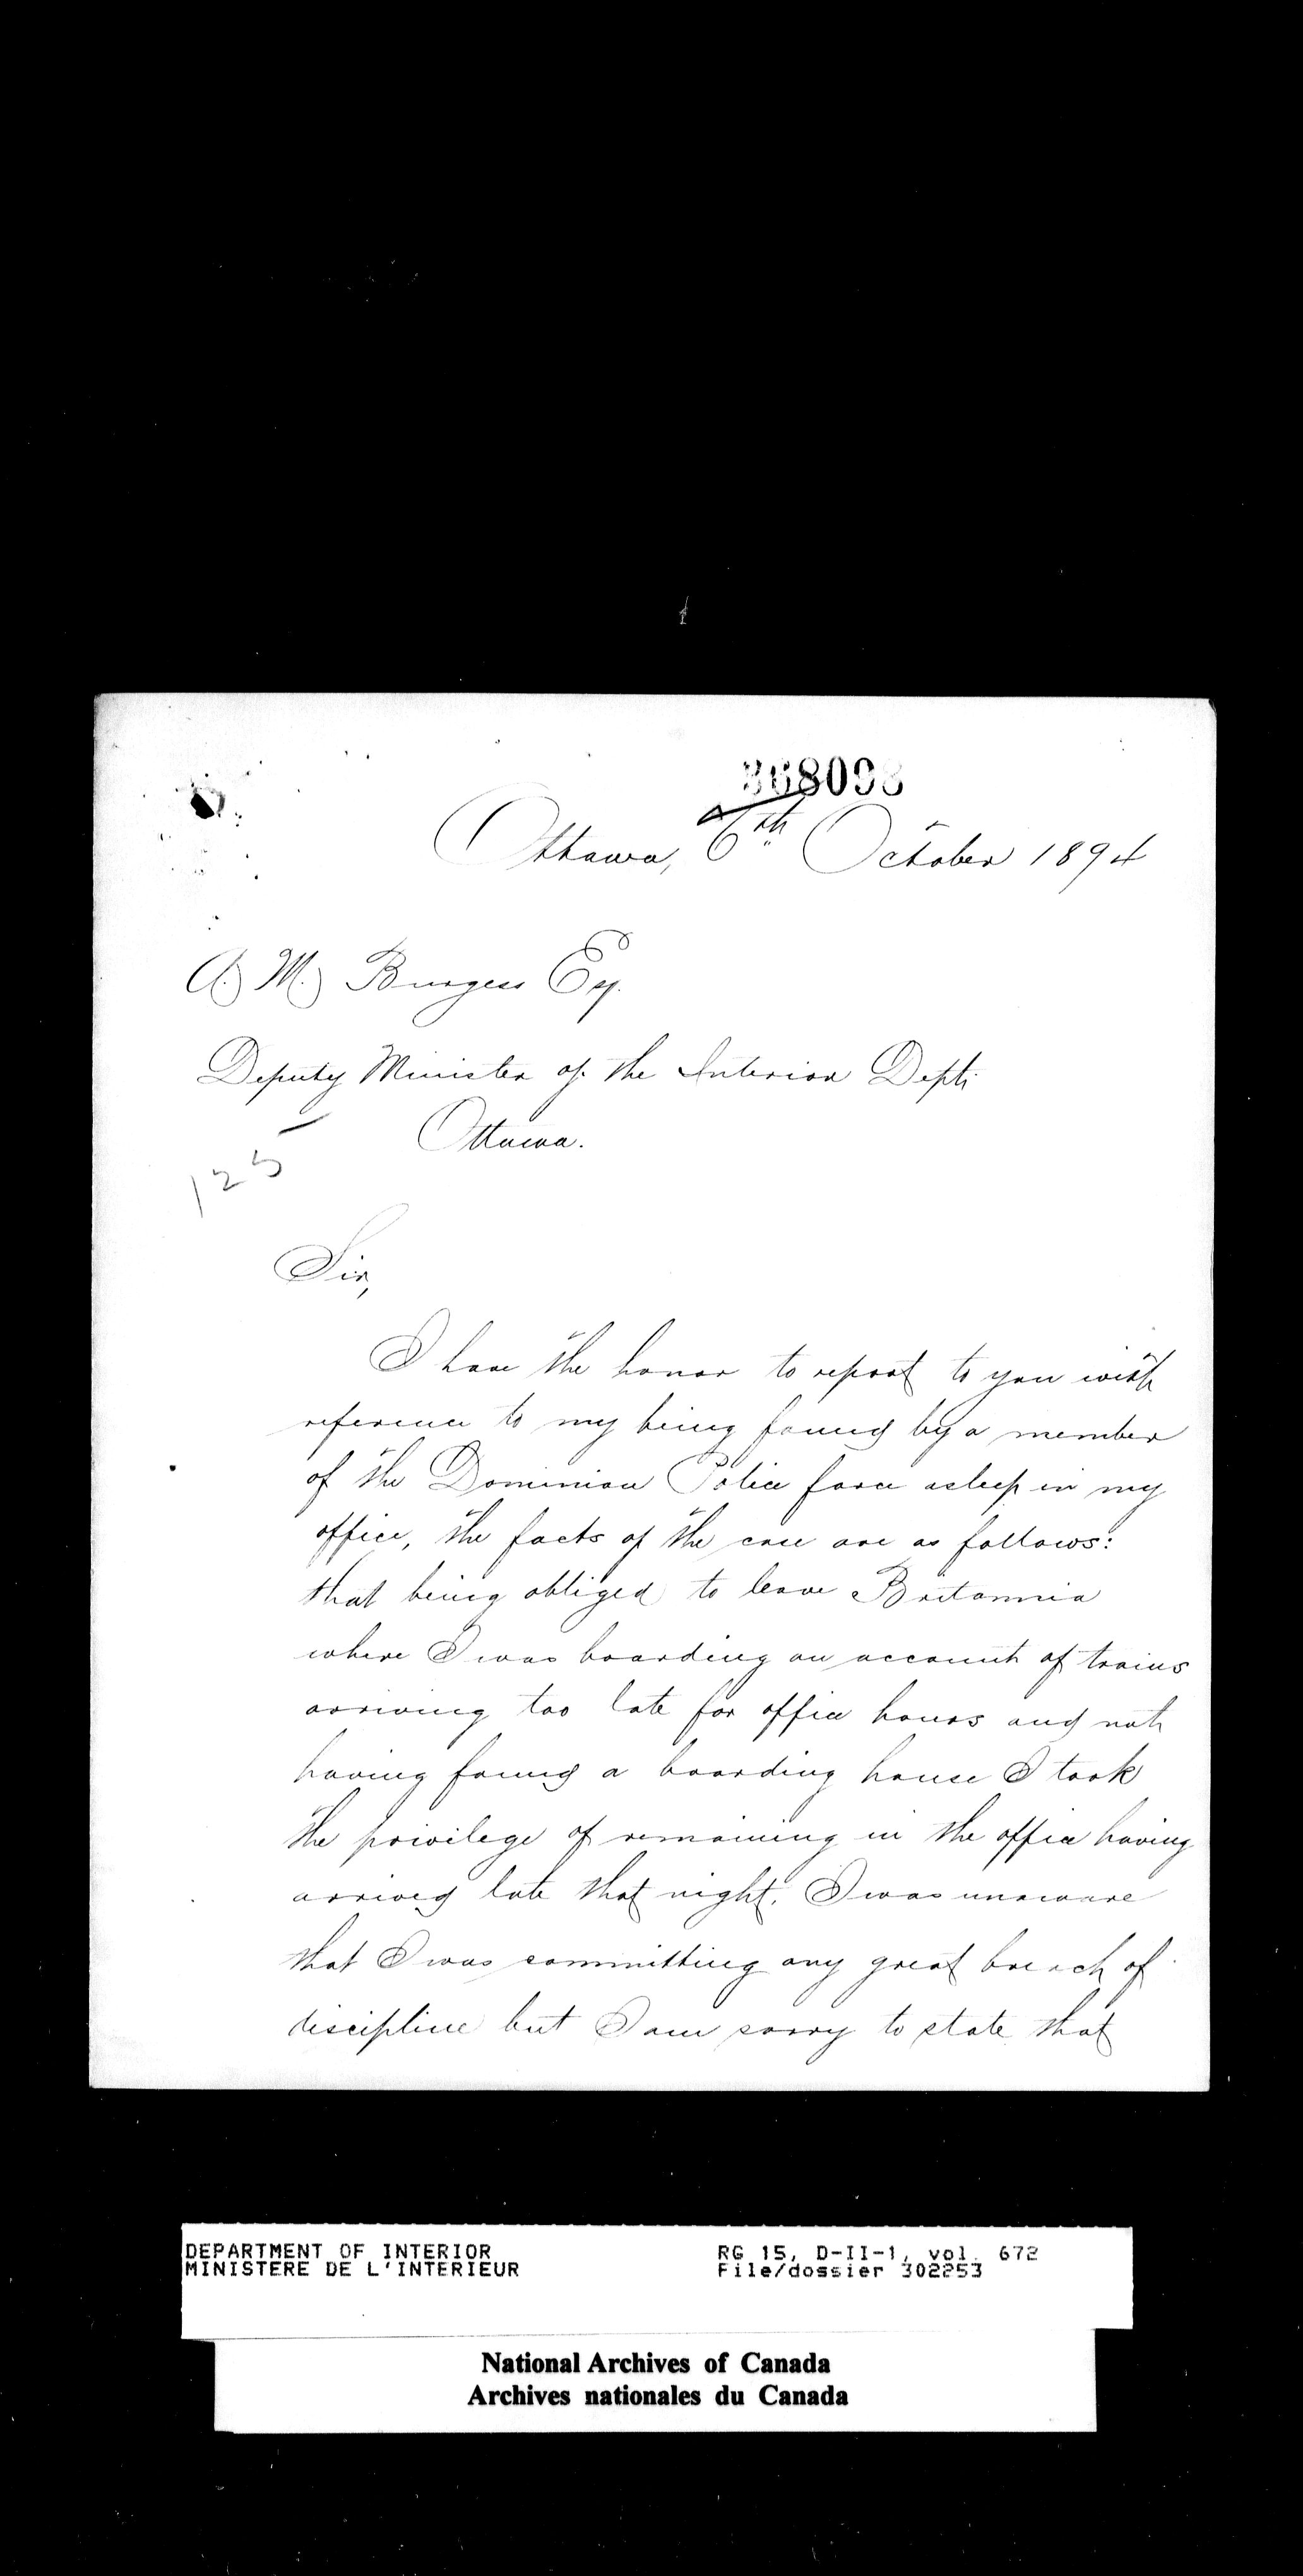 368093
Ottawa, 6th October 1894
A. M. Burgess Esq.
Deputy Minister of the Interior Dept.
Ottawa.
125
Sir,
I have the honor to report to you with
reference to my being found by a member
of the Dominion Police force asleep in my
office, the facts of the case are as follows:
that being obliged to leave Britannia
where I was boarding on account of trains
arriving too late for office hours and not
having found a boarding house I took
the privilege of remaining in the office having
arrived late that night. I was unaware
that I was committing any great breach of
discipline but I am sorry to state that
DEPARTMENT OF INTERIOR
MINISTERE DE L'INTERIEUR
RG 15, D-II-1, vol. 672
File/dossier 302253
National Archives of Canada
Archives nationales du Canada